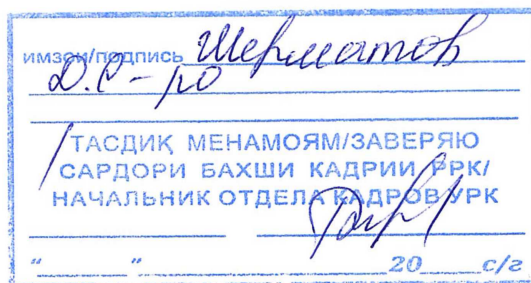 имзои/подпись Шерматов
Д.С-ро
ТАСДИҚ МЕНАМОЯМ/ЗАВЕРЯЮ
САРДОРИ БАХШИ КАДРИИ РРК/
НАЧАЛЬНИК ОТДЕЛА КАДРОВ УРК
" " 20 с/г